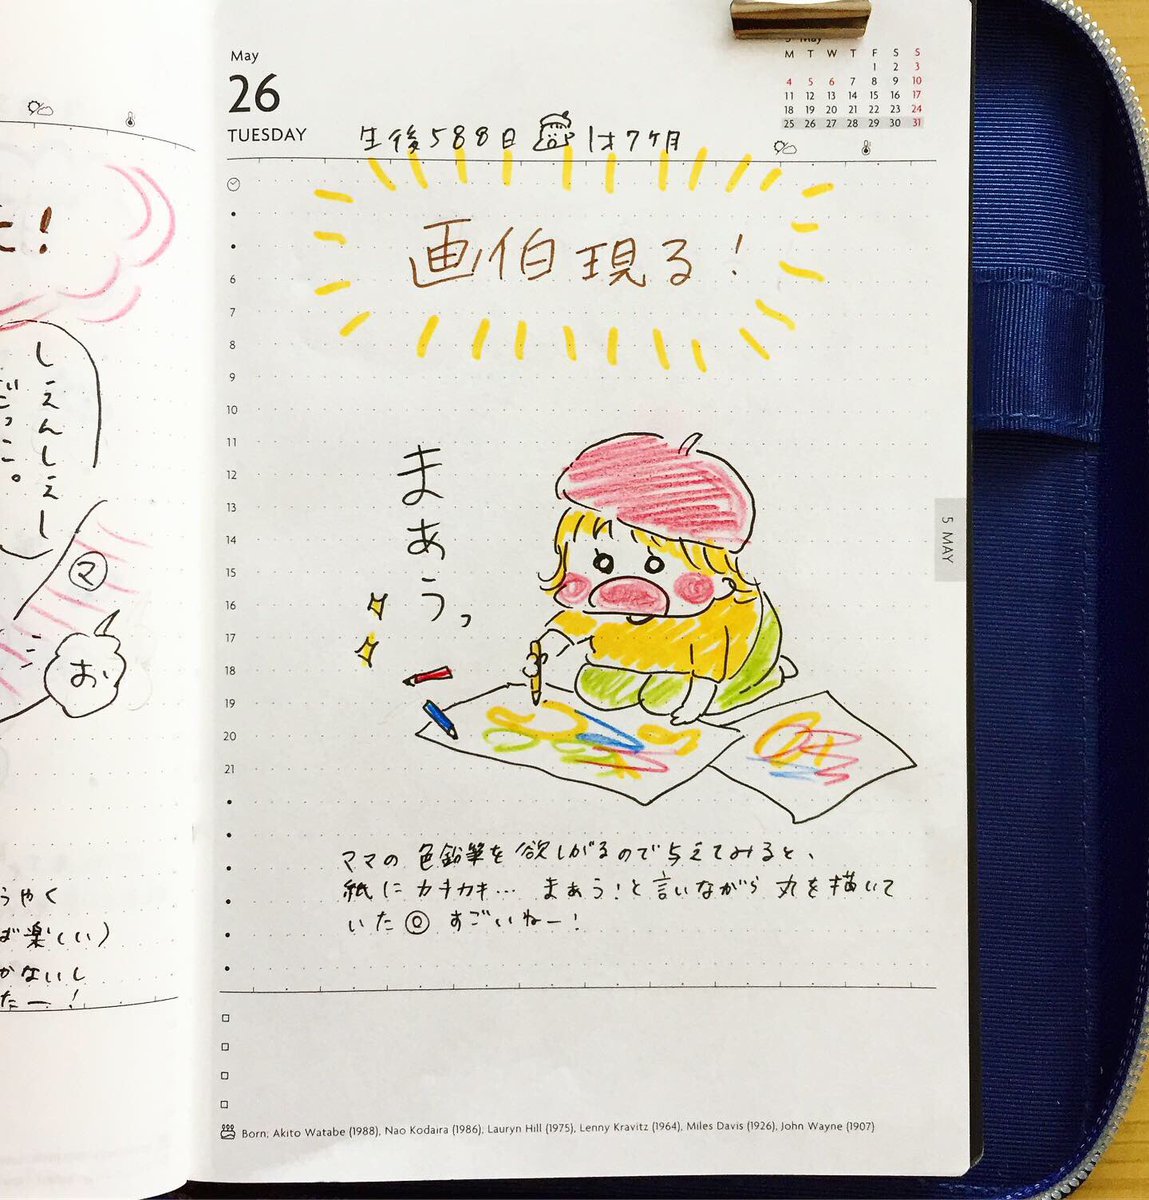 May
26
TUESDAY
生後588日 1才7ヶ月
5 May
M T W T F S S
1 2 3
4 5 6 7 8 9 10
11 12 13 14 15 16 17
18 19 20 21 22 23 24
25 26 27 28 29 30 31
画伯現る!
6
7
8
9
10
11
12
13
14
15
16
17
18
19
20
21
まぁうっ
5 MAY
ママの色鉛筆を欲しがるので与えてみると、
紙にカキカキ… まぁう!と言いながら丸を描いて
いた◎ すごいねー!
Born; Akito Watabe (1988), Nao Kodaira (1986); Lauryn Hill (1975), Lenny Kravitz (1964), Miles Davis (1926), John Wayne (1907)
た!
しえんしえー
ごっこ。
マ
お
うやく
ば楽しい)
かないし
たー!